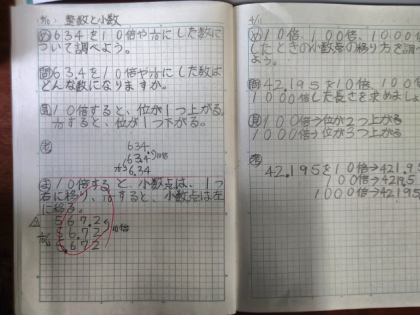 4/10 整数と小数
め 63.4を10倍や1/10にした数に
ついて調べよう。
問 63.4を10倍や1/10にした数は
どんな数になりますか。
見 10倍すると、位が1つ上がる。
1/10すると、位が1つ下がる。
634.
63.4 10倍
6.34
ま 10倍すると、小数点は、1つ
右に移り、1/10すると、小数点は左
に移る。
567.2
56.72 10倍
5.672
4/11
め 10倍、100倍、1000
したときの小数点の移り方を調べ
よう。
問 42.195を10倍、100
1000倍した長さを求めまし
見 100倍→位が2つ上がる
1000倍→位が3つ上がる
42.195を10倍→421.95
100倍→4219.5
1000倍→42195